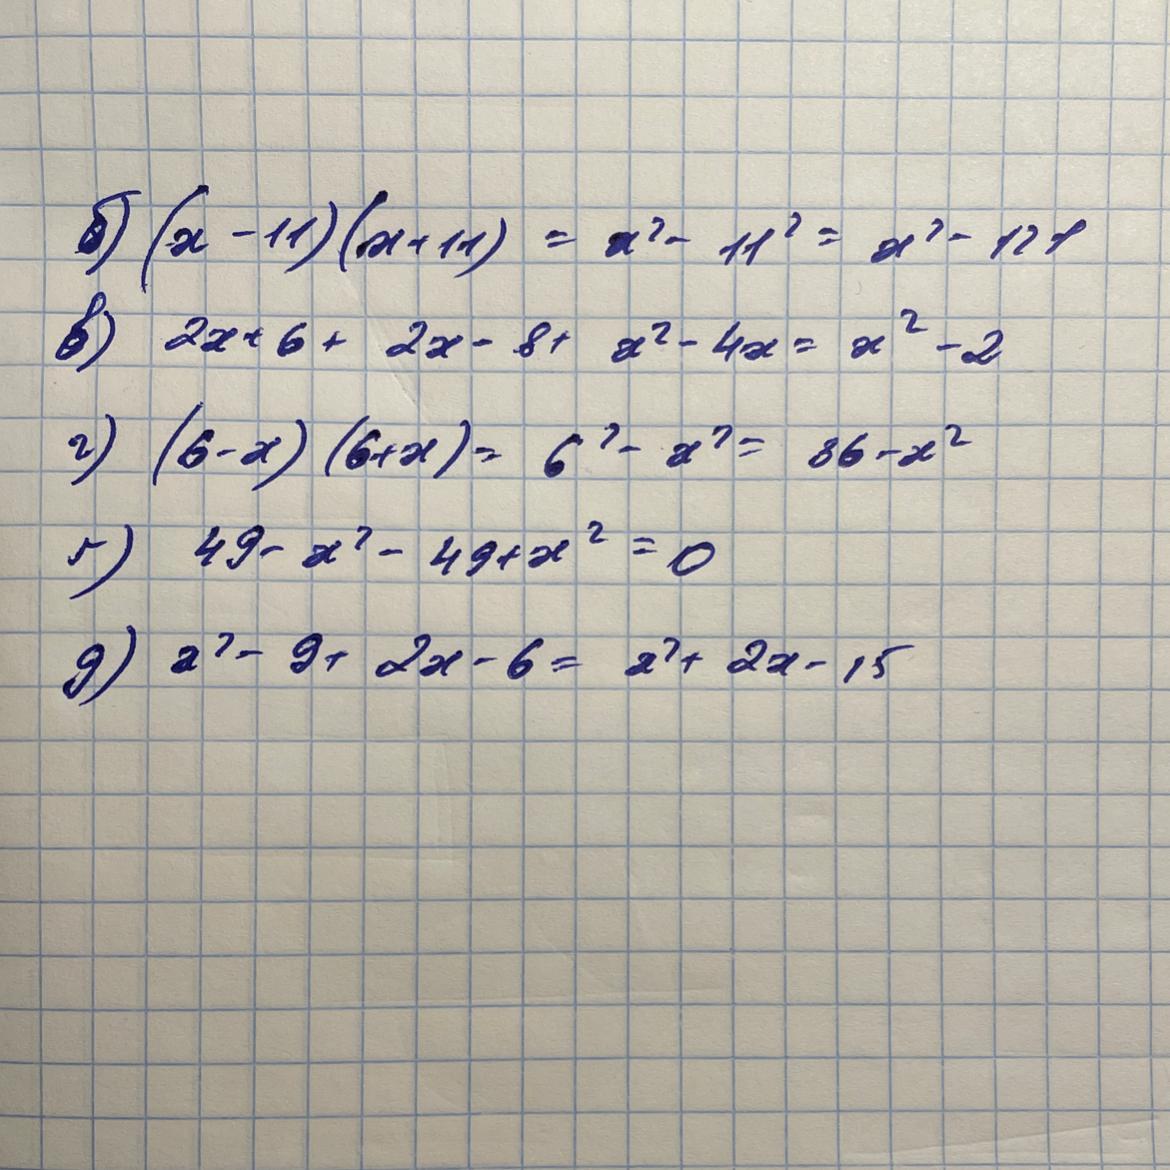 б) (x - 11)(x + 11) = x² - 11² = x² - 121
в) 2x + 6 + 2x - 8 + x² - 4x = x² - 2
г) (6 - x)(6 + x) = 6² - x² = 36 - x²
г) 49 - x² - 49 + x² = 0
д) x² - 9 + 2x - 6 = x² + 2x - 15